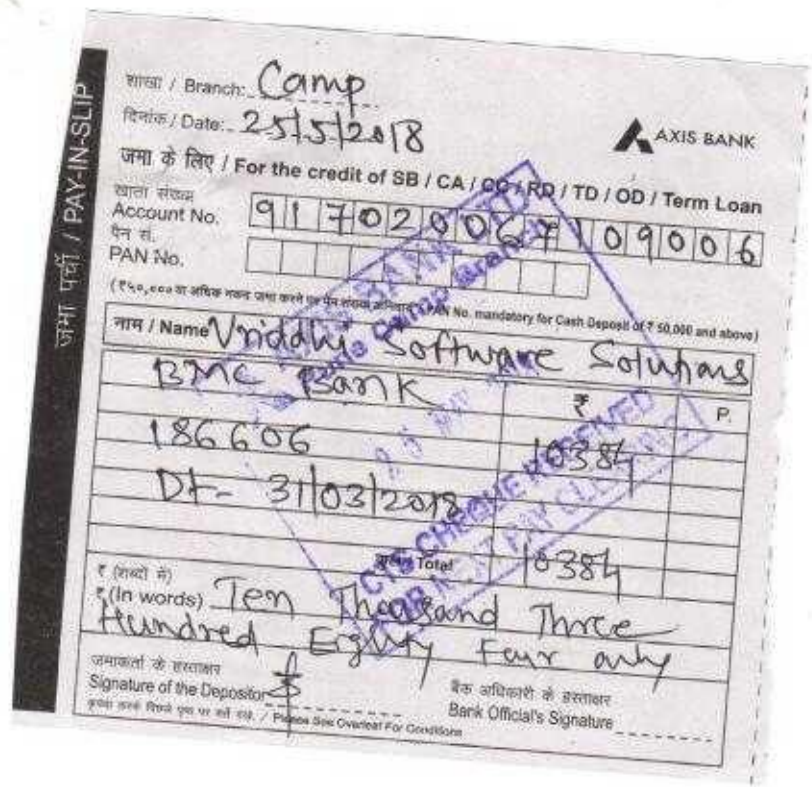 जमा पर्ची / PAY-IN-SLIP
शाखा / Branch: Camp
दिनांक / Date: 25/5/2018
AXIS BANK
जमा के लिए / For the credit of SB / CA / CC / RD / TD / OD / Term Loan
खाता संख्या
Account No. 917020067109006
पैन सं.
PAN No.
PAN No. mandatory for Cash Deposit of ₹ 50,000 and above)
नाम / Name Vriddhi Software Solutions
BMC Bank ₹ P.
186606 10384
Dt- 31/03/2018
Total 10384
₹ (शब्दों में)
₹ (In words) Ten Thousand Three
Hundred Eighty Four only
जमाकर्ता के हस्ताक्षर
Signature of the Depositor
बैंक अधिकारी के हस्ताक्षर
Bank Official's Signature
/ Please See Overleaf For Conditions
Camp Branch
CTS CHEQUE RECEIVED
FOR NEXT DAY CLEARING